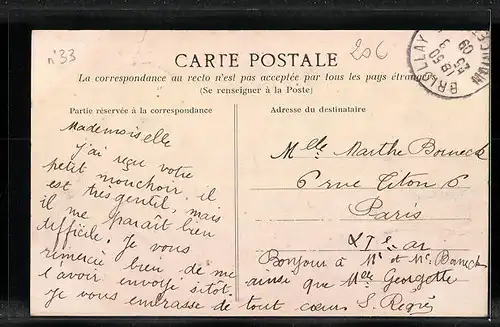 n° 33
20c
CARTE POSTALE
La correspondance au recto n'est pas acceptée par tous les pays étrangers
(Se renseigner à la Poste)
BRULLAY
Partie réservée à la correspondance
Adresse du destinataire
Mademoiselle
J'ai reçu votre
petit mouchoir, il
est très gentil, mais
il me paraît bien
difficile. Je vous
remercie bien de me
l'avoir envoyé sitôt.
Je vous embrasse de tout cœur S.
Melle Marthe Borneck
6 rue Titon 6
Paris
XIe ar
Bonjour à Mr et Me Borneck
ainsi que Melle Georgette